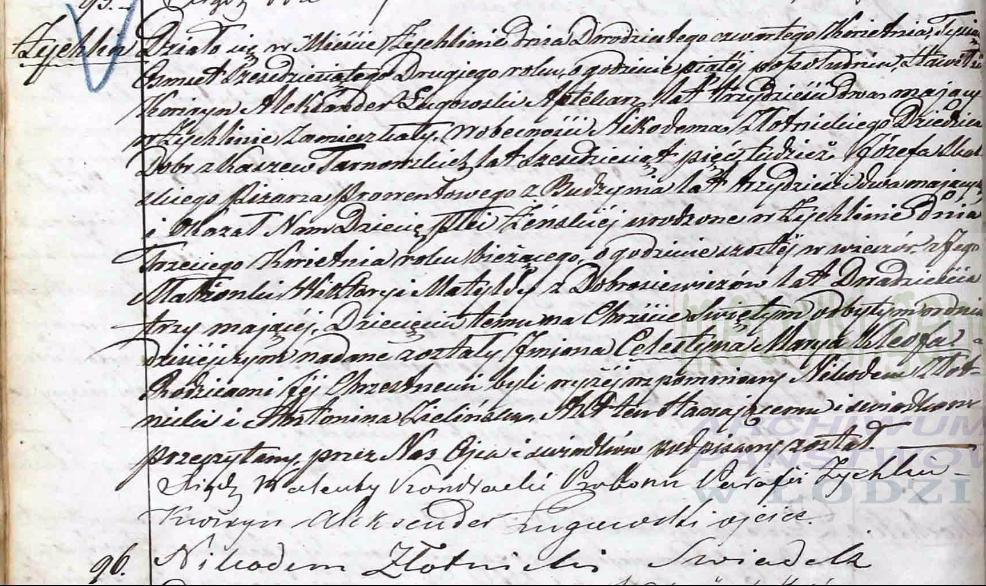 95.
Żychlin Działo się w Mieście Żychlinie dnia Dwudziestego czwartego Kwietnia, Tysiąc
Ośmset Sześdziesiątego Drugiego roku, o godzinie piątej popołudniu, Stawił się
Kwiryn Aleksander Ługowski Aptekarz, lat trzydzieści dwa mający
w Żychlinie zamieszkały, w obecności Nikodema Złotnickiego Dziedzica
Dobr z Kaszew Tarnowskich, lat sześdziesiąt pięć tudzież Józefa
skiego pisarza prowentowego z Budzynia lat trzydzieści dwa mających
i okazał Nam Dziecię płci żeńskiej urodzone w Żychlinie dnia
Trzeciego Kwietnia roku bieżącego, o godzinie szóstej w wieczór z jego
Małżonki Wiktoryi Matyldy z Dobrosiewiczów lat Dwadzieścia
trzy mającej. Dziecięciu temu na Chrzcie Świętym odbytym w dniu
dzisiejszym nadane zostały Imiona Celestyna Marya Kleofa, a
Rodzicami jej Chrzestnemi byli wyżej wspomniany Nikodem Złot-
nicki i Antonina Zielińska. Akt ten stawającemu i świadkom
przeczytany, przez Nas Ojca i świadków podpisany został
Ksiądz Walenty Kondracki Proboszcz Parafii Żychlin
Kwiryn Aleksander Ługowski ojciec.
96. Nikodem Złotnicki Swiadek
ARCHIWUM
PAŃSTWOWE
W ŁODZI